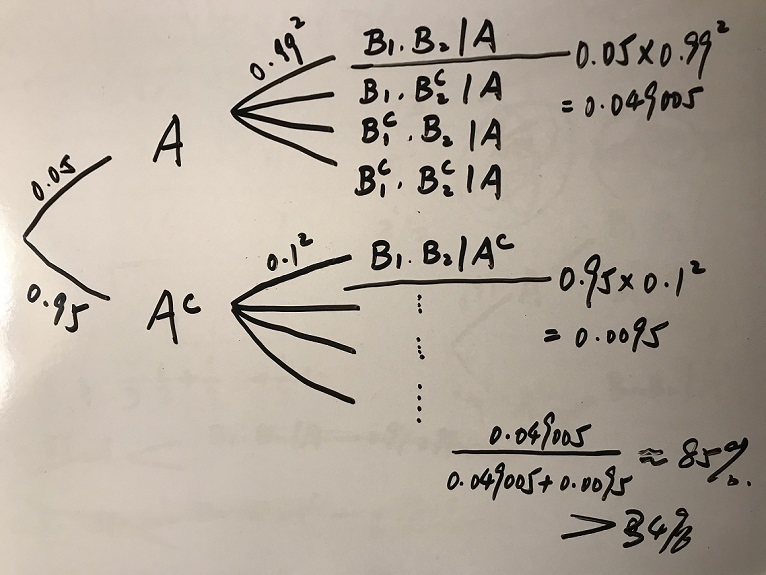 0.05
A
0.99²
B₁.B₂|A
0.05×0.99²
= 0.049005
B₁.B₂ᶜ|A
B₁ᶜ.B₂|A
B₁ᶜ.B₂ᶜ|A
0.95
Aᶜ
0.1²
B₁.B₂|Aᶜ
0.95×0.1²
= 0.0095
0.049005
0.049005+0.0095
≈ 85%.
> 34%